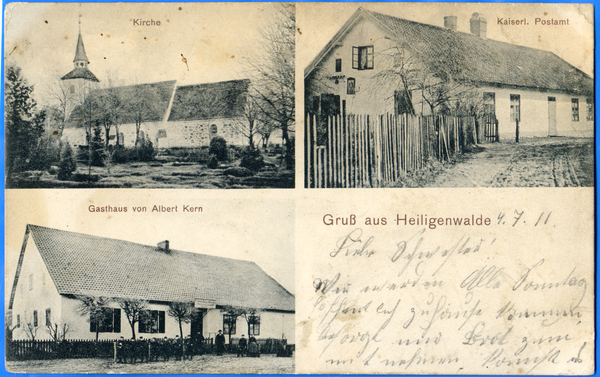 Kirche
Kaiserl. Postamt
Gasthaus von Albert Kern
Gruß aus Heiligenwalde 4.7.11.
Liebe Schwester!
Wir werden Alle Sonntag
zuhause kommen,
und Brot zum
mit nehmen